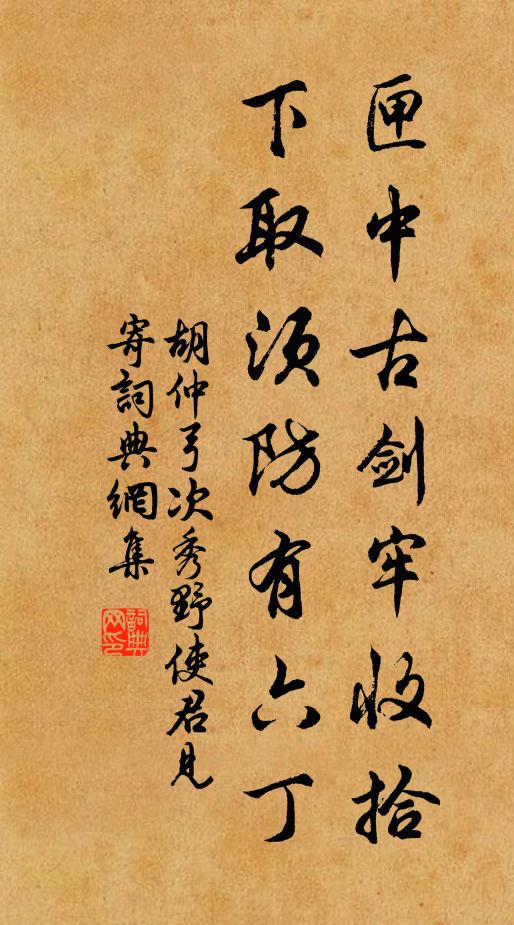 匣中古剑牢收拾
下取须防有六丁
胡仲弓次秀野使君見
寄詞典網集
詞典
网印